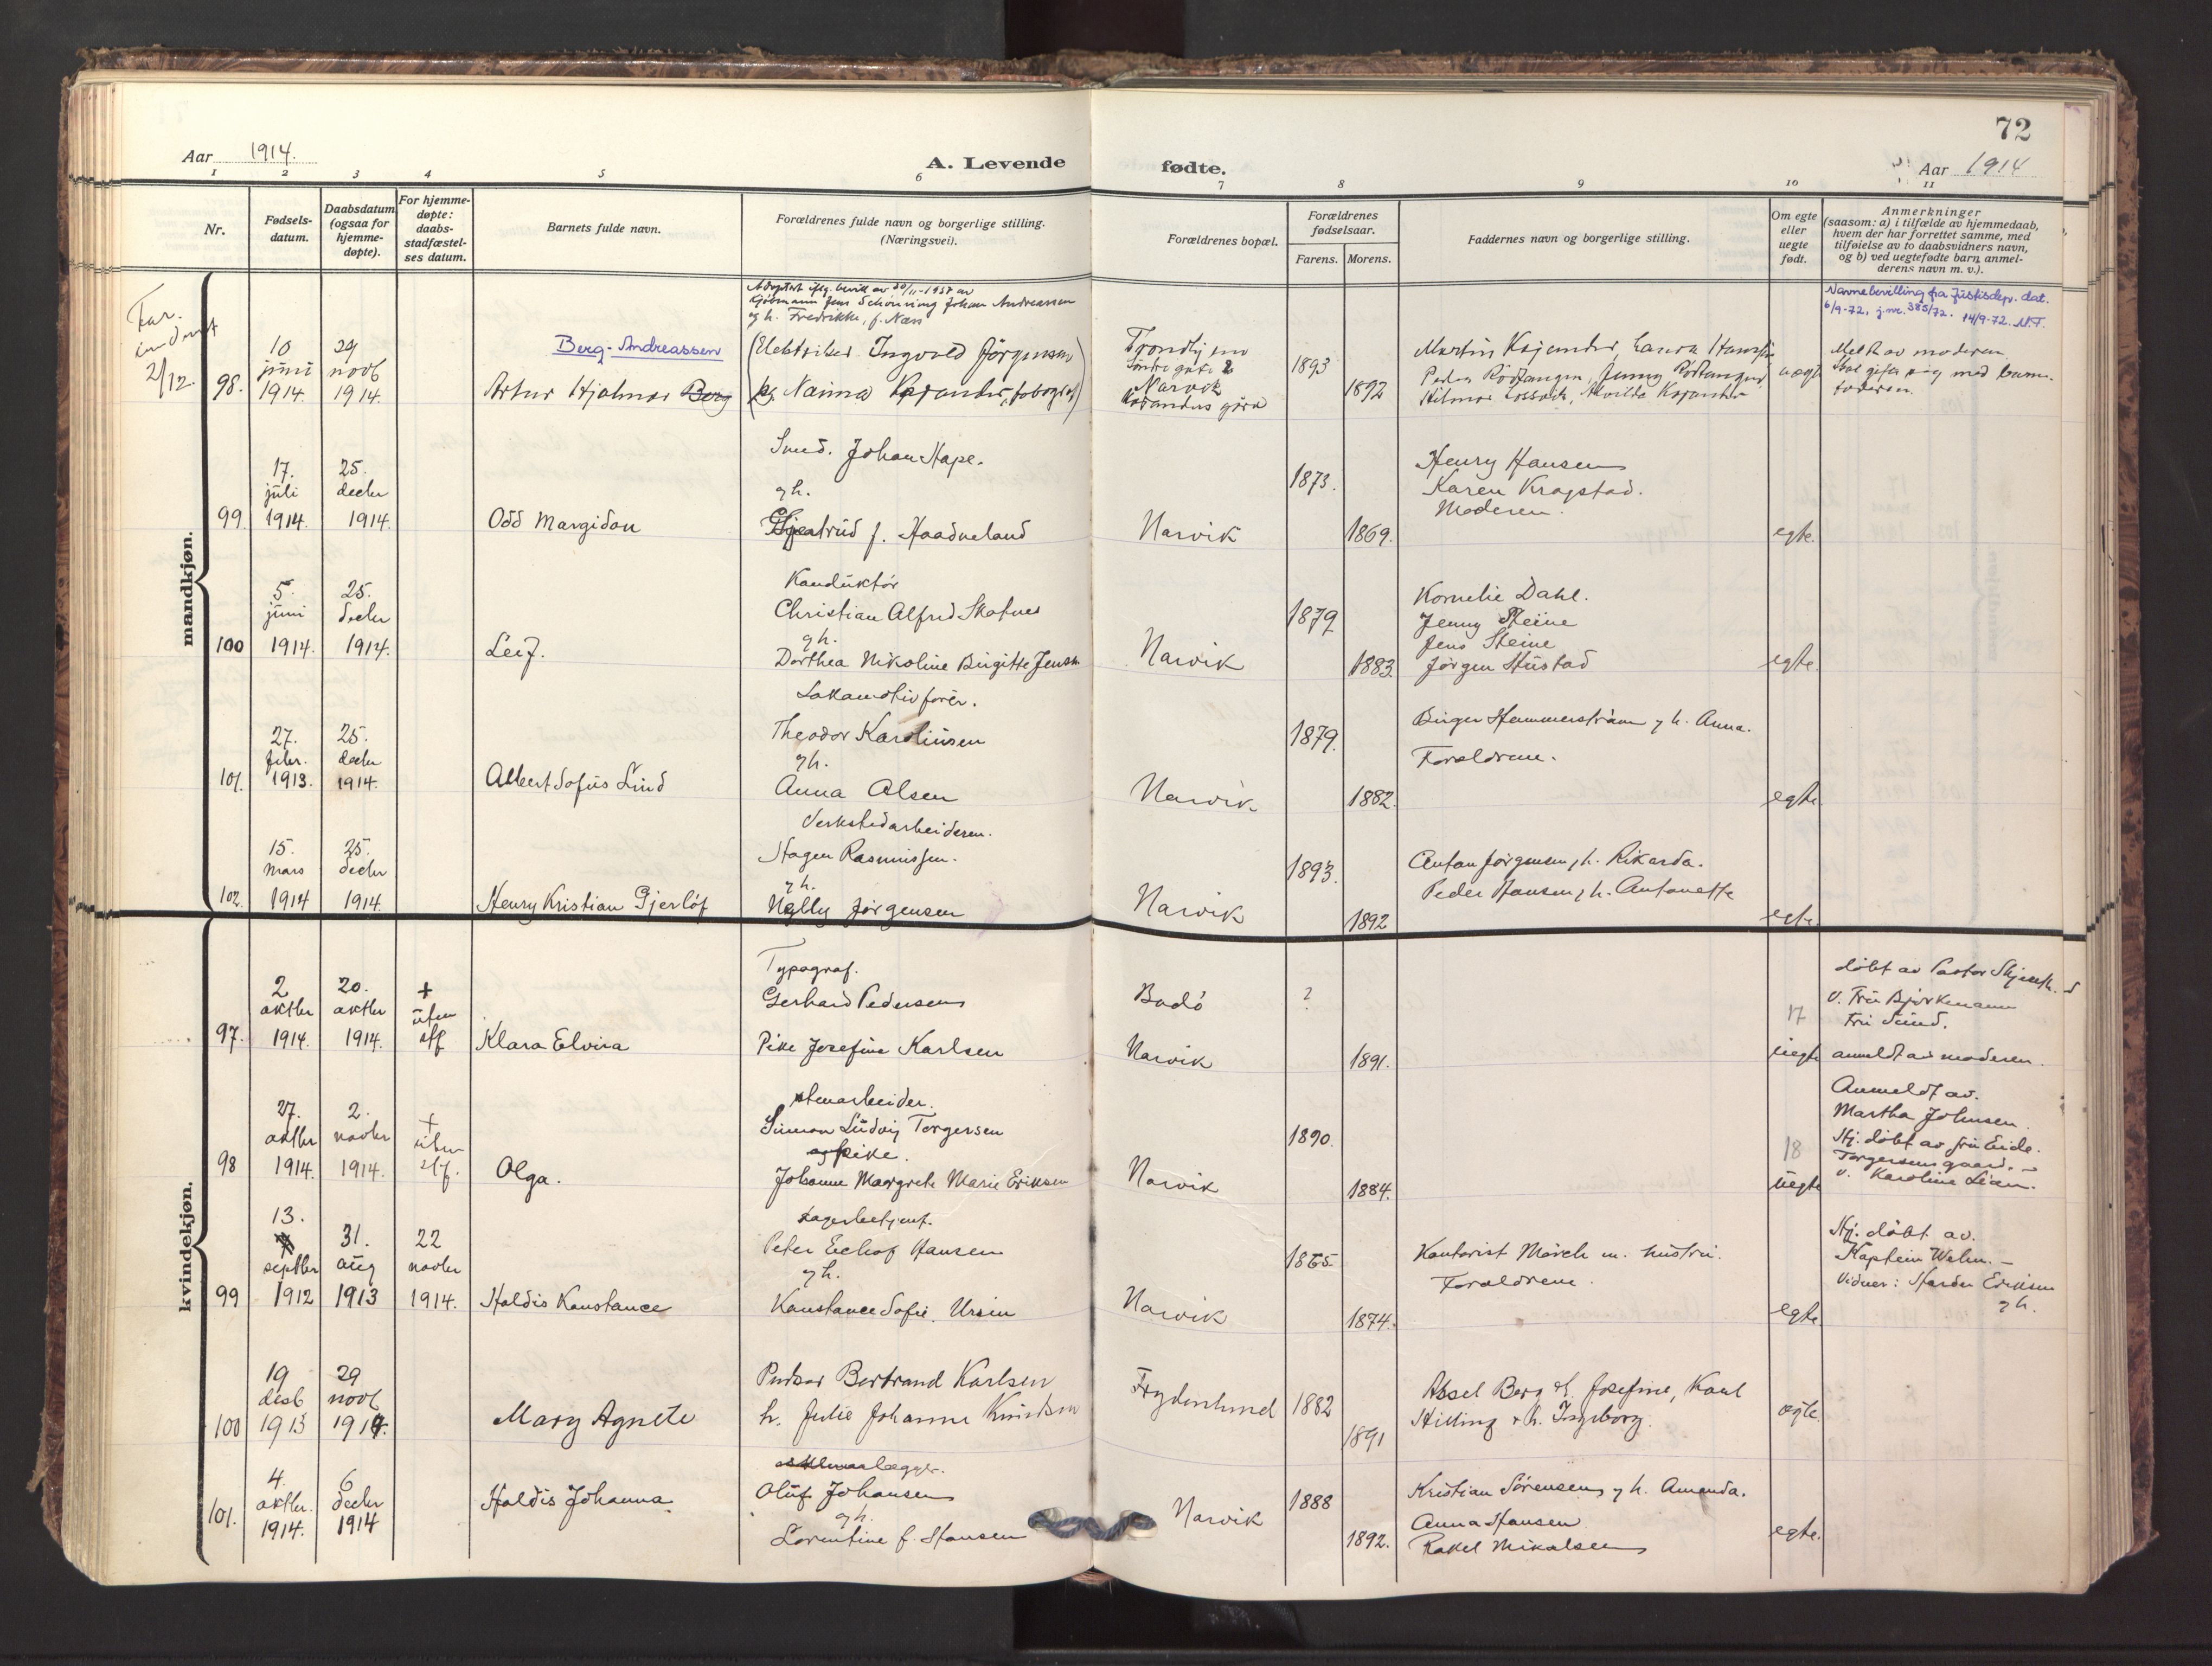 72
Aar 1914.
A. Levende
fødte.
Aar 1914
1 2 3 4 5 6 7 8 9 10 11
Nr.
Fødsels-
datum.
Daabsdatum
(ogsaa for
hjemme-
døpte).
For hjemme-
døpte:
daabs-
stadfæstel-
ses datum.
Barnets fulde navn.
Forældrenes fulde navn og borgerlige stilling.
(Næringsvei).
Forældrenes bopæl.
Forældrenes
fødselsaar.
Farens. Morens.
Faddernes navn og borgerlige stilling.
Om egte
eller
uegte
født.
Anmerkninger
(saasom: a) i tilfælde av hjemmedaab,
hvem der har forrettet samme, med
tilføielse av to daabsvidners navn,
og b) ved uegtefødte barn, anmel-
derens navn m. v.).
mandkjøn.
2/12.
98.
10
juni
1914.
29
novb
1914.
Berg-Andreassen
Artur Hjalmar Berg
Adoptert iflg. bevill. av
Kjøbmann Jens Schønning Johan Andreassen
og h. Fredrikke, f. Næss
Ingvald Jørgensen
Naima
Narvik
1893
1892
Navnebevilling fra Justisdep. dat.
6/9-72, j.nr. 385/72. 14/9-72.
Meldt av moderen
99.
17.
juli
1914.
25.
decbr
1914.
Odd Margidon
Smed. Johan Hope.
g h.
f. Haadneland
Narvik
1873.
1869.
Henry Hansen
Karen Krogstad.
Moderen.
egte.
100
5.
juni
1914.
25.
decbr
1914.
Leif.
Konduktør
Christian Alfred Skatnes
g h.
Dorthea Nikoline Birgitte Jensen
Narvik
1879
1883.
Kornelie Dahl.
Jenny Steine
Jens Steine
Jørgen Hustad
egte.
101.
27.
febr.
1913.
25.
decbr
1914.
Albert Sofus Lind
Lokomotivfører.
Theodor Karoliusen
g h.
Anna Olsen
Narvik
1879.
1882.
Birger Hammerstrøm g h. Anna.
Forældrene.
egte.
102.
15.
mars
1914
25.
decbr
1914.
Henry Kristian Gjerløf
Verkstedarbeideren.
Hagen Rasmussen.
g h.
Nelly Jørgensen
Narvik
1893.
1892
Anton Jørgensen g h. Rikarda.
Peder Hansen g h. Antonette
egte.
kvindekjøn.
97.
2
oktbr
1914.
20.
oktbr
1914.
+
uten
stf
Klara Elvira
Typograf.
Gerhard Pedersen
Pike Josefine Karlsen
Bodø
Narvik
?
1891.
17
uegte
døbt av Pastor
v. Fru Bjørkmann
Fru Sund.
anmeldt av moderen.
98
27.
oktbr
1914.
2.
novbr
1914.
+
uten
stf.
Olga.
stenarbeider.
Simon Ludvig Torgersen
og pike.
Johanne Margrete Marie Eriksen
Narvik
1890.
1884.
18
uegte
Anmeldt av.
Martha Johnsen.
Hj. døbt av fru Eide.
Torgersens gaard. -
v. Karoline Lian.
99
13.
septbr
1912
31.
aug
1913
22
novbr
1914.
Haldis Konstance
Lagerbetjent.
Peter Eehof Hansen
g h.
Konstance Sofie. Ursin
Narvik
1865
1874.
Kontorist Mørch m. hustru.
Forældrene.
egte.
Hj. døbt av.
Kaptein Wehn. -
Vidner: Harder Eriksen
g h.
100
19
desb
1913
29
novb
1914.
Mary Agnete
Pudser Bertrand Karlsen
h. Julie Johanne Knudsen
Frydenlund
1882
1891
Absel Berg & h. Josefine, Karl
Hilling & h. Ingeborg.
egte.
101.
4.
oktbr.
1914.
6
decbr
1914
Haldis Johanna
Oluf Johansen
g h.
Lorentine f. Hansen
Narvik
1888
1892.
Kristian Sørensen g h. Amanda.
Anna Hansen
Rakel Mikalsen
egte.